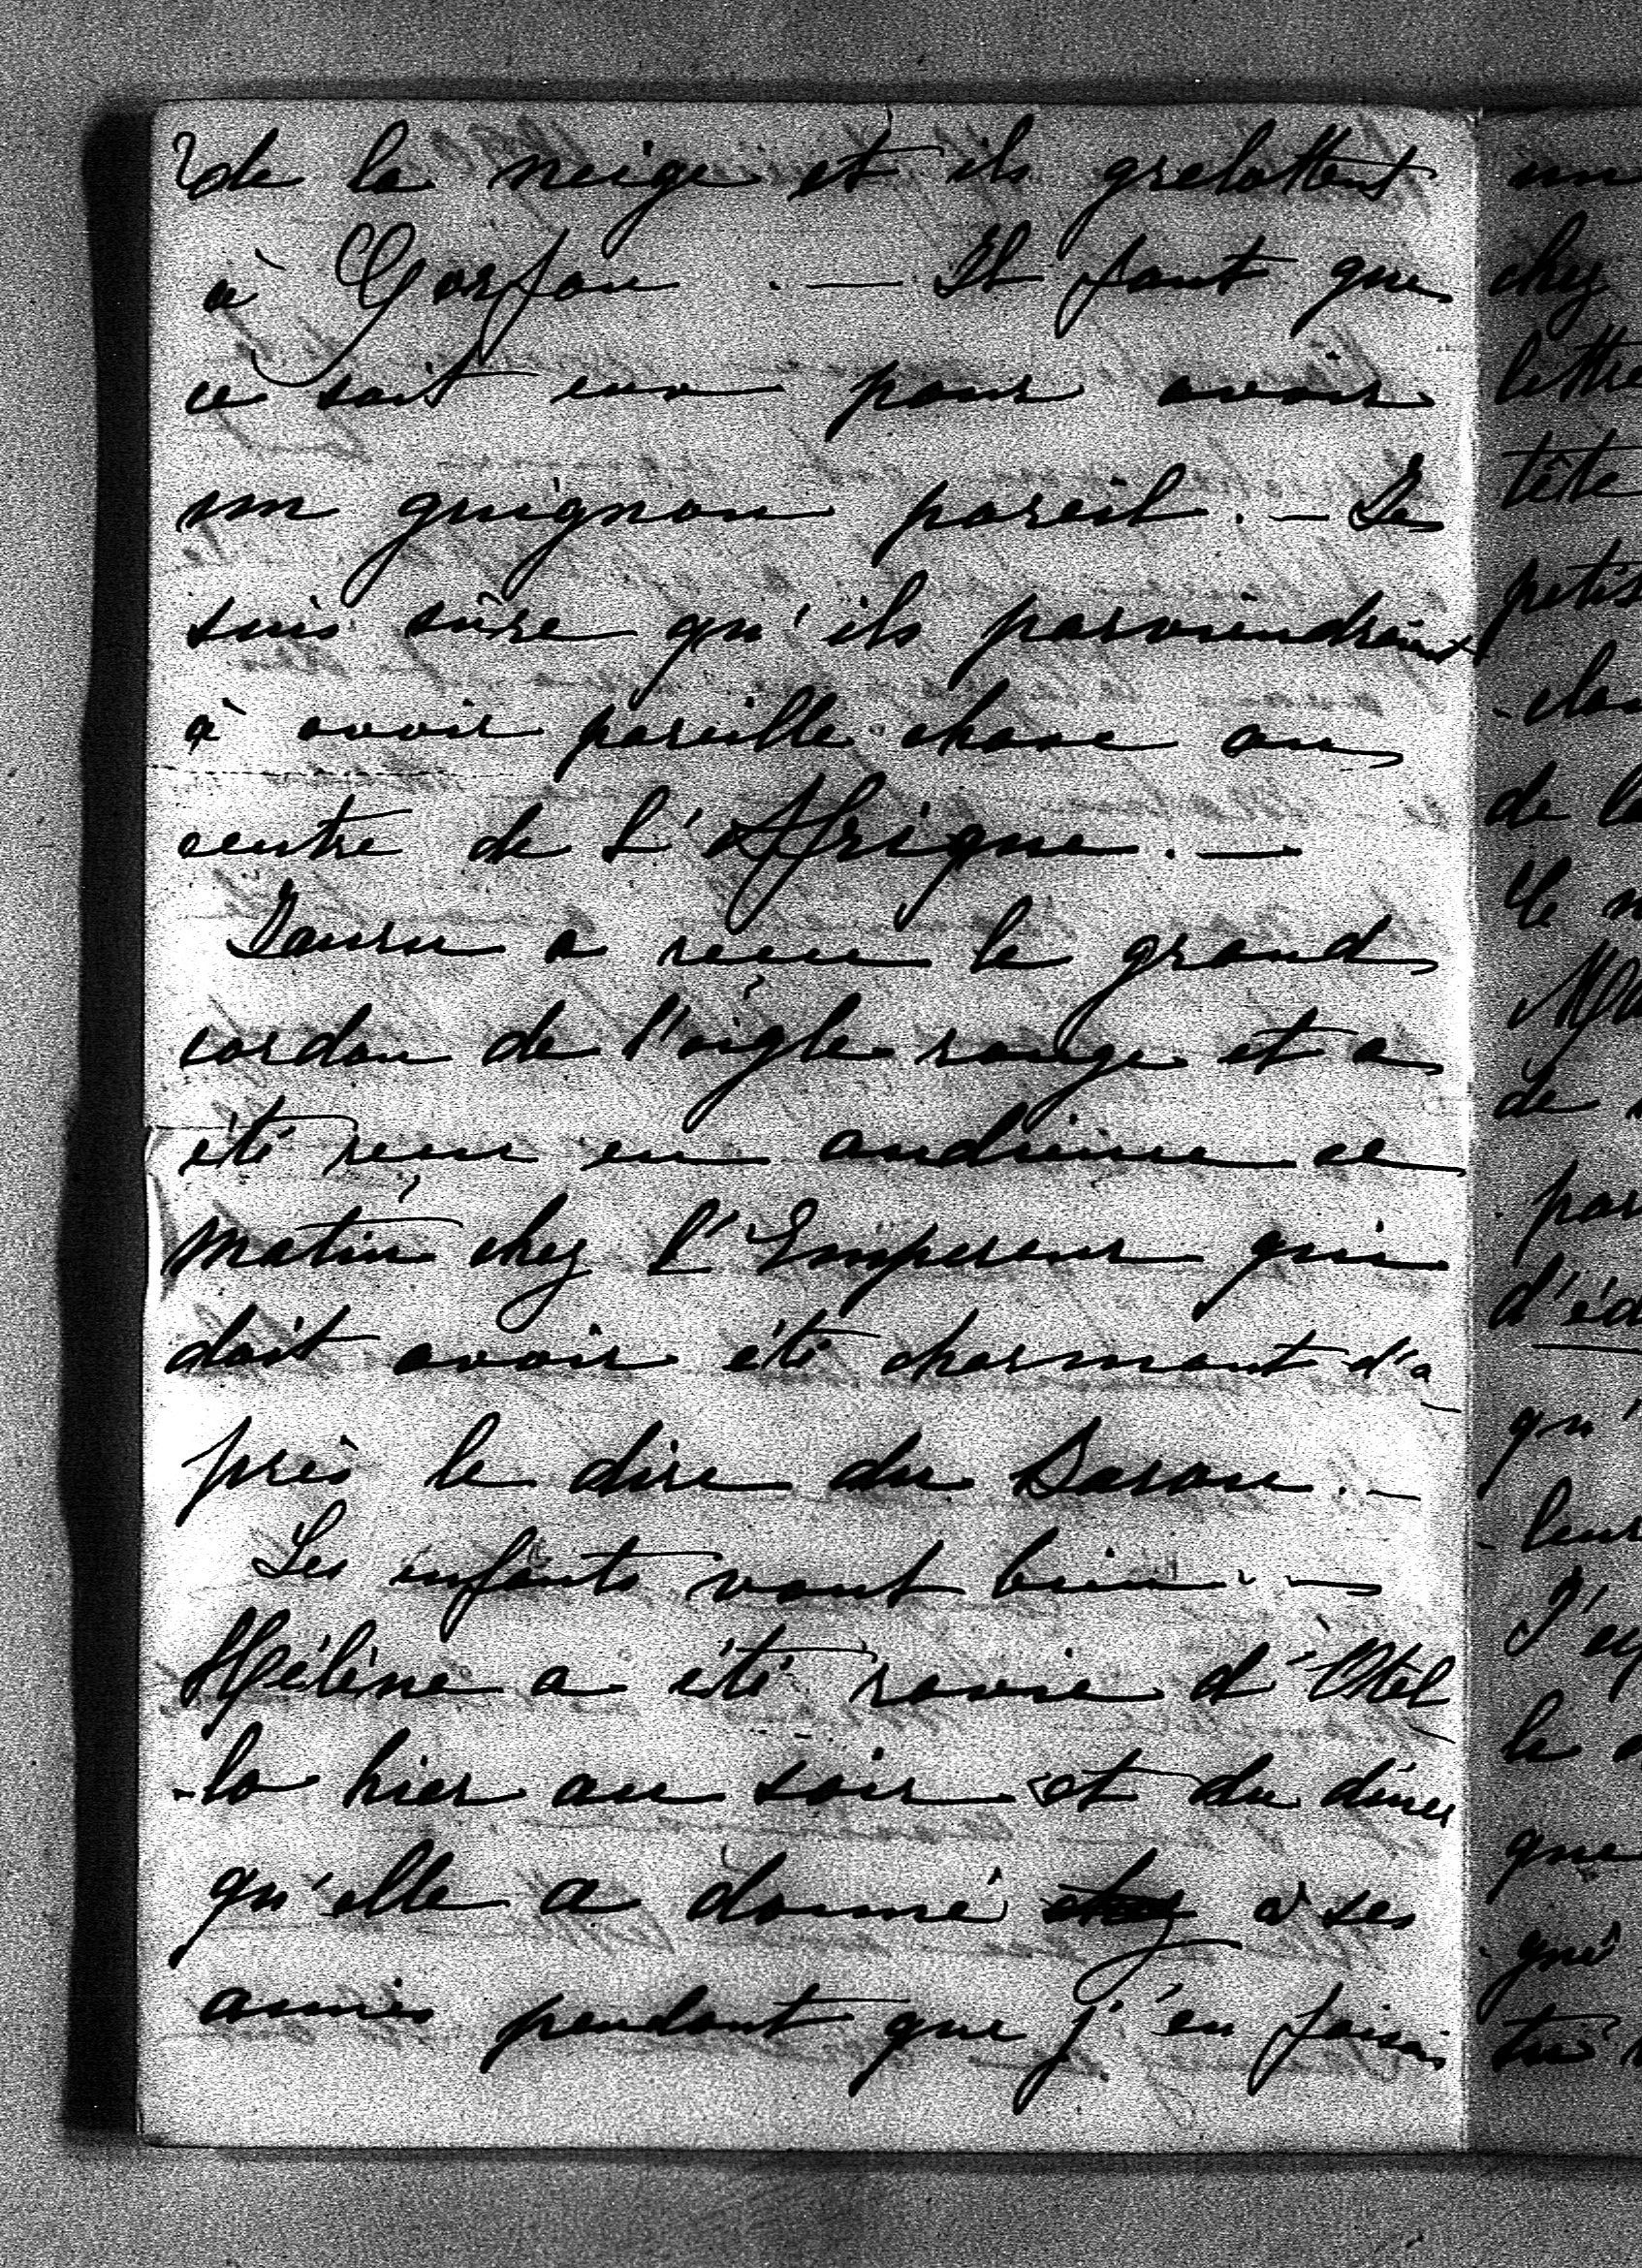 de la neige et ils grelottent
à Corfou. — Il faut que
ce soit eux pour avoir
un guignon pareil. — Je
suis sûre qu'ils parviendraient
à avoir pareille chose au
centre de l'Afrique. —
a reçu le grand
cordon de l'aigle rouge et a
été reçu en audience ce
matin chez l'Empereur qui
doit avoir été charmant d'a
près le dire du Baron. —
Les enfants vont bien. —
Hélène a été ravie d'Otel
-lo hier au soir et du dîner
qu'elle a donné chez à ses
amies pendant que j'en faisais
un
chez
lettre
tête
petis
de la
de
par
qu'
leur
la
que